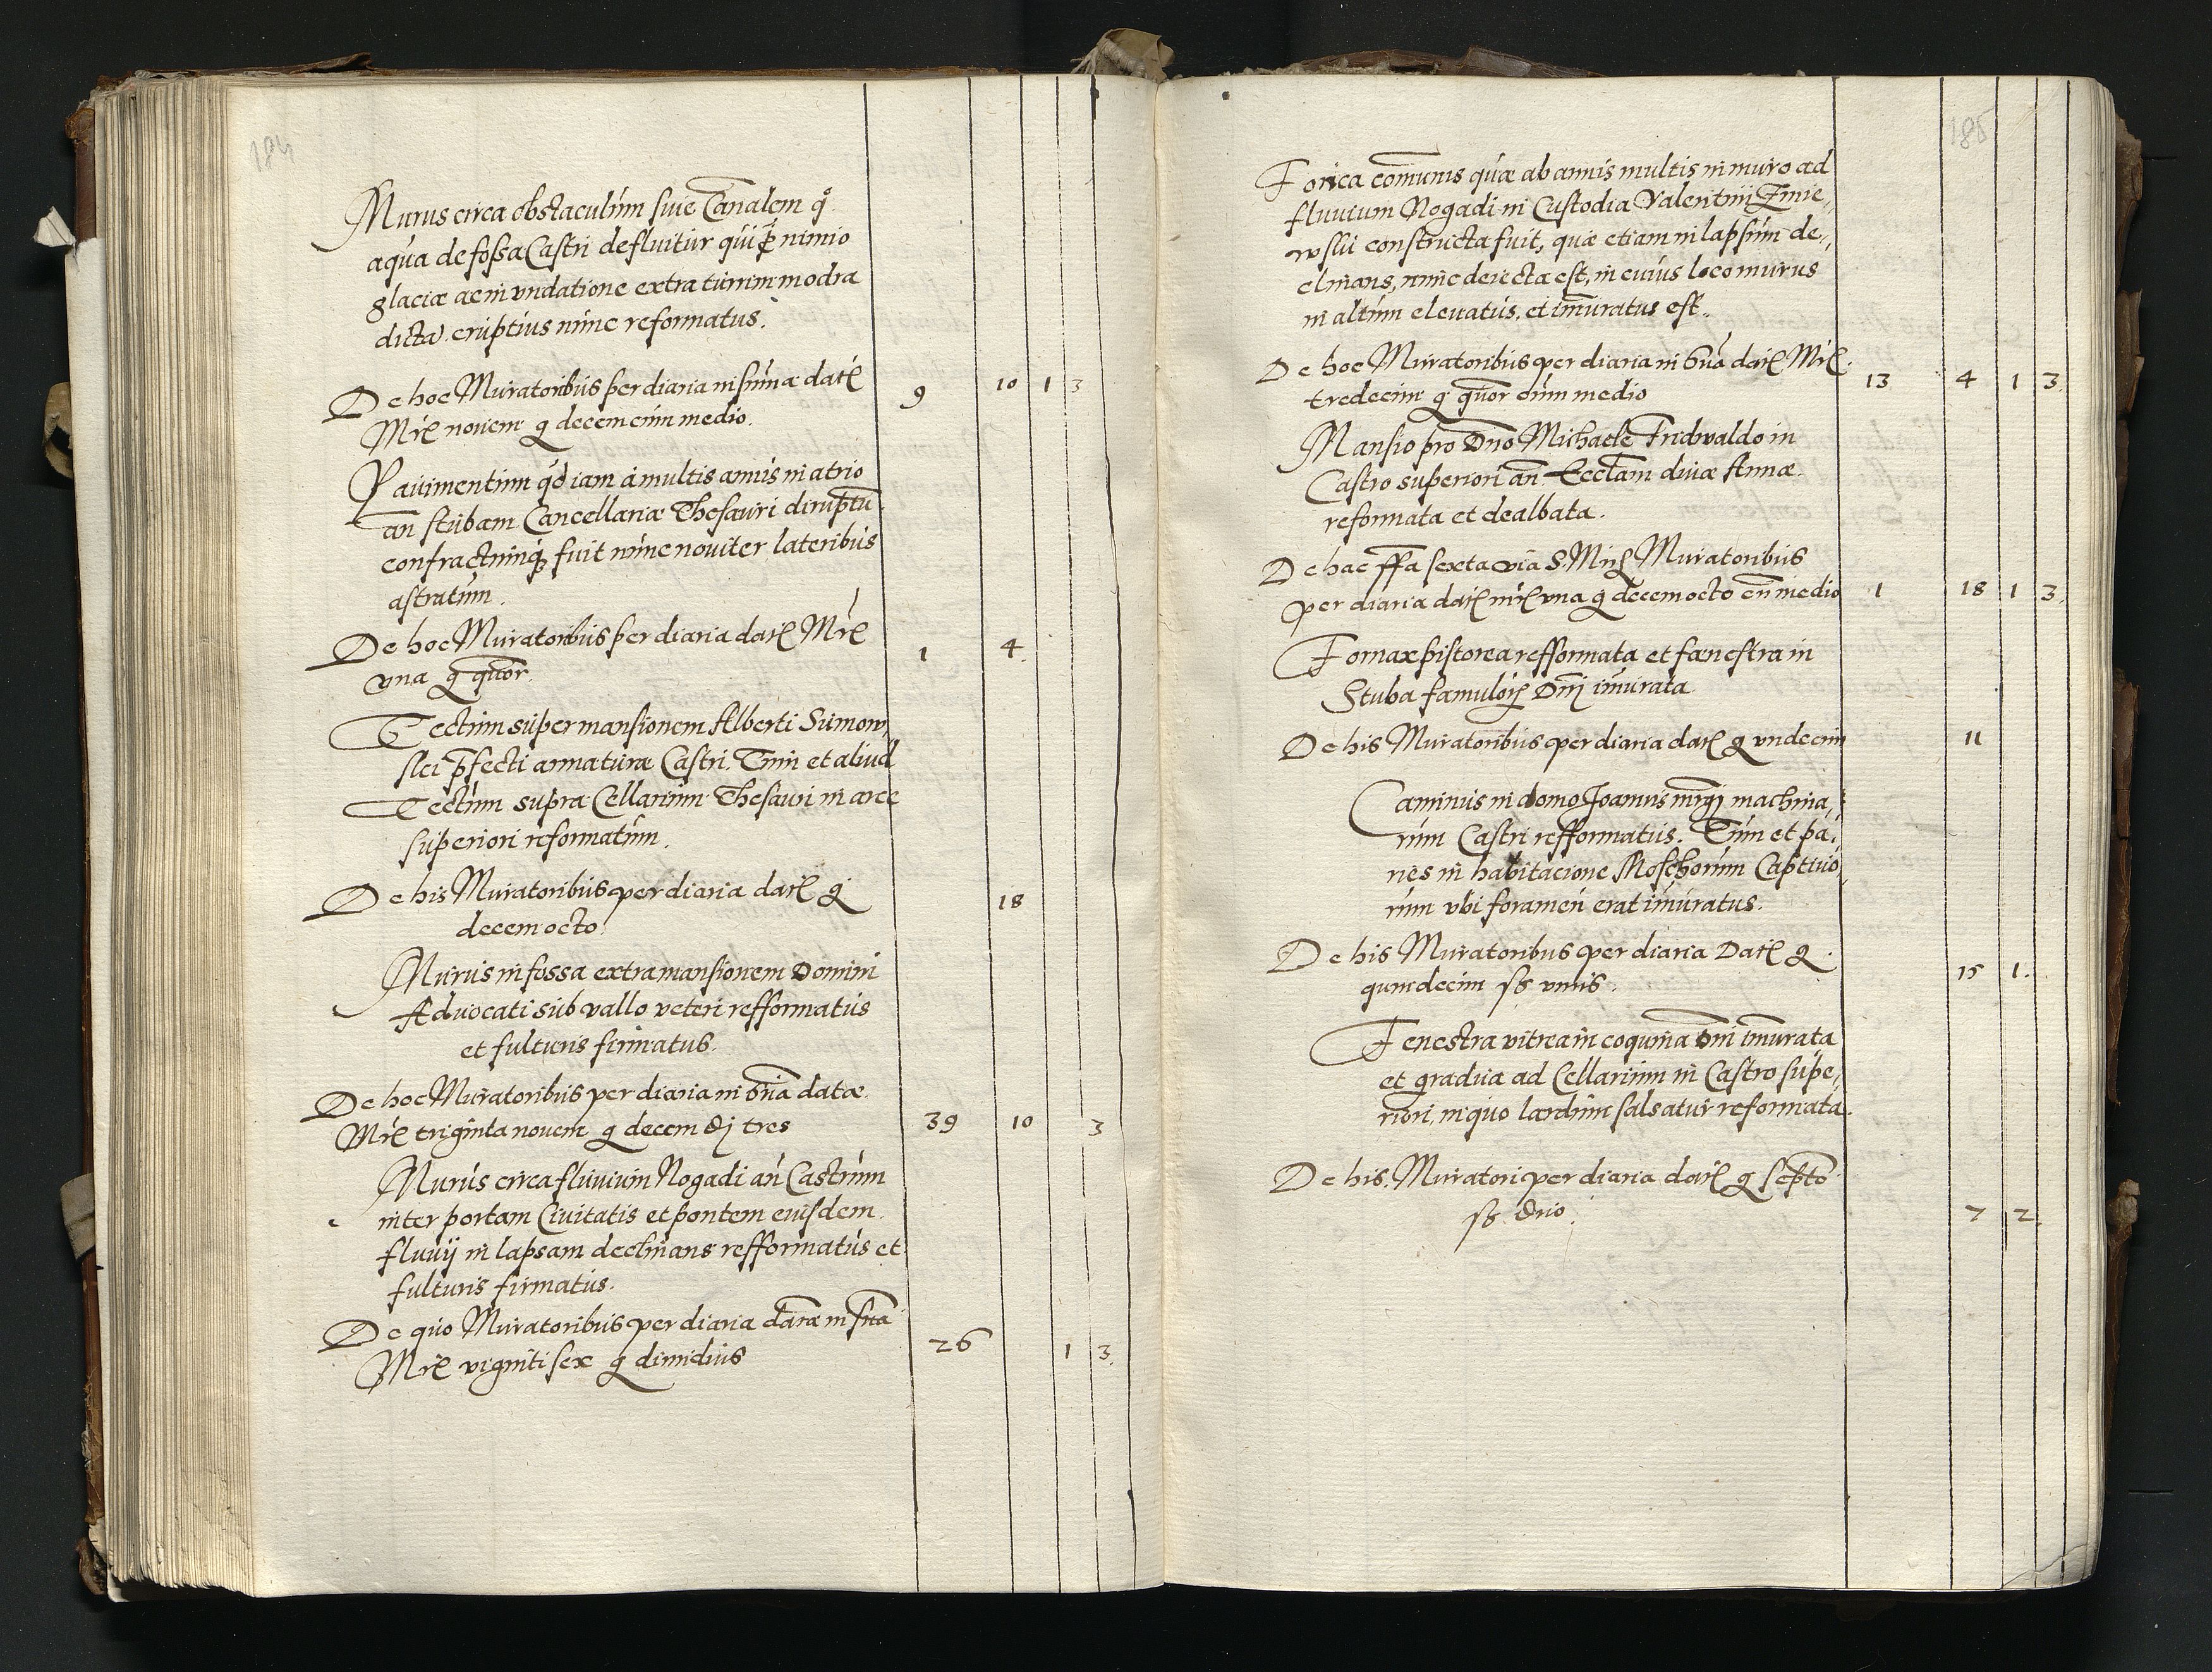 184
Murus circa obstaculum siue Canalem q
aqua de fossa Castri defluitur qui p nimio
glacie ac in vndatione extra turrim modra
dicta eruptus nunc reformatus.
De hoc Muratoribus per diaria in summa dat 9 10 1 3
Mr nouem g decem cum medio.
Pauimentum qd iam a multis annis in atrio
an stubam Cancellariæ Thesauri diruptu
confractumq fuit nunc nouiter lateribus
astratum.
De hoc Muratoribus per diaria dat Mr 1 4
vna g quor.
Tectum super mansionem Alberti Sumow,,
slci pfecti armaturæ Castri. Tum et aliud
Tectum supra Cellarium Thesauri in arce
superiori reformatum.
De his Muratoribus per diaria dat g 18
decem octo
Murus in fossa extra mansionem Domini
Aduocati sub vallo veteri refformatus
et fulturis firmatus.
De hoc Muratoribus per diaria in sma datæ
Mr triginta nouem g decem d tres 39 10 3
Murus circa fluuium Nogadi an Castrum
inter portam Ciuitatis et pontem eiusdem
fluuij in lapsam declinans refformatus et
fulturis firmatus.
De quo Muratoribus per diaria datæ in sma
Mr viginti sex g dimidius 26 1 3
185
Forica comunis quæ ab annis multis in muro ad
fluuium Nogadi in Custodia Valentini Zmie,,
wslii constructa fuit, quæ etiam in lapsum de,,
clinans, nunc deiecta est, in cuius loco murus
in altum eleuatus, et imuratus est.
De hoc Muratoribus per diaria in sma dat Mr 13 4 1 3
tredecim g quor cum medio
Mansio pro Dno Michaele Fridwaldo in
Castro superiori an Ecclam diuæ Annæ
reformata et dealbata.
De hac ffa sexta via S. Mich Muratoribus
per diaria dat mr vna g decem octo cu medio 1 18 1 3
Fornax pistorea refformata et fænestra in
Stuba famulor Dni imurata
De his Muratoribus per diaria dat g vndecim 11
Caminus in domo Joannis mgri machina,,
rum Castri refformatus. Tum et pa,,
ries in habitacione Moschorum Captiuo,,
rum vbi foramen erat imuratus.
De his Muratoribus per diaria Dat g 15 1
quindecim ss vnus.
Fenestra vitrea in coquina Dni imurata
et gradua ad Cellarium in Castro supe,,
riori, in quo lardum salsatur reformata.
De his Muratori per diaria dat g septe
ss duo. 7 2